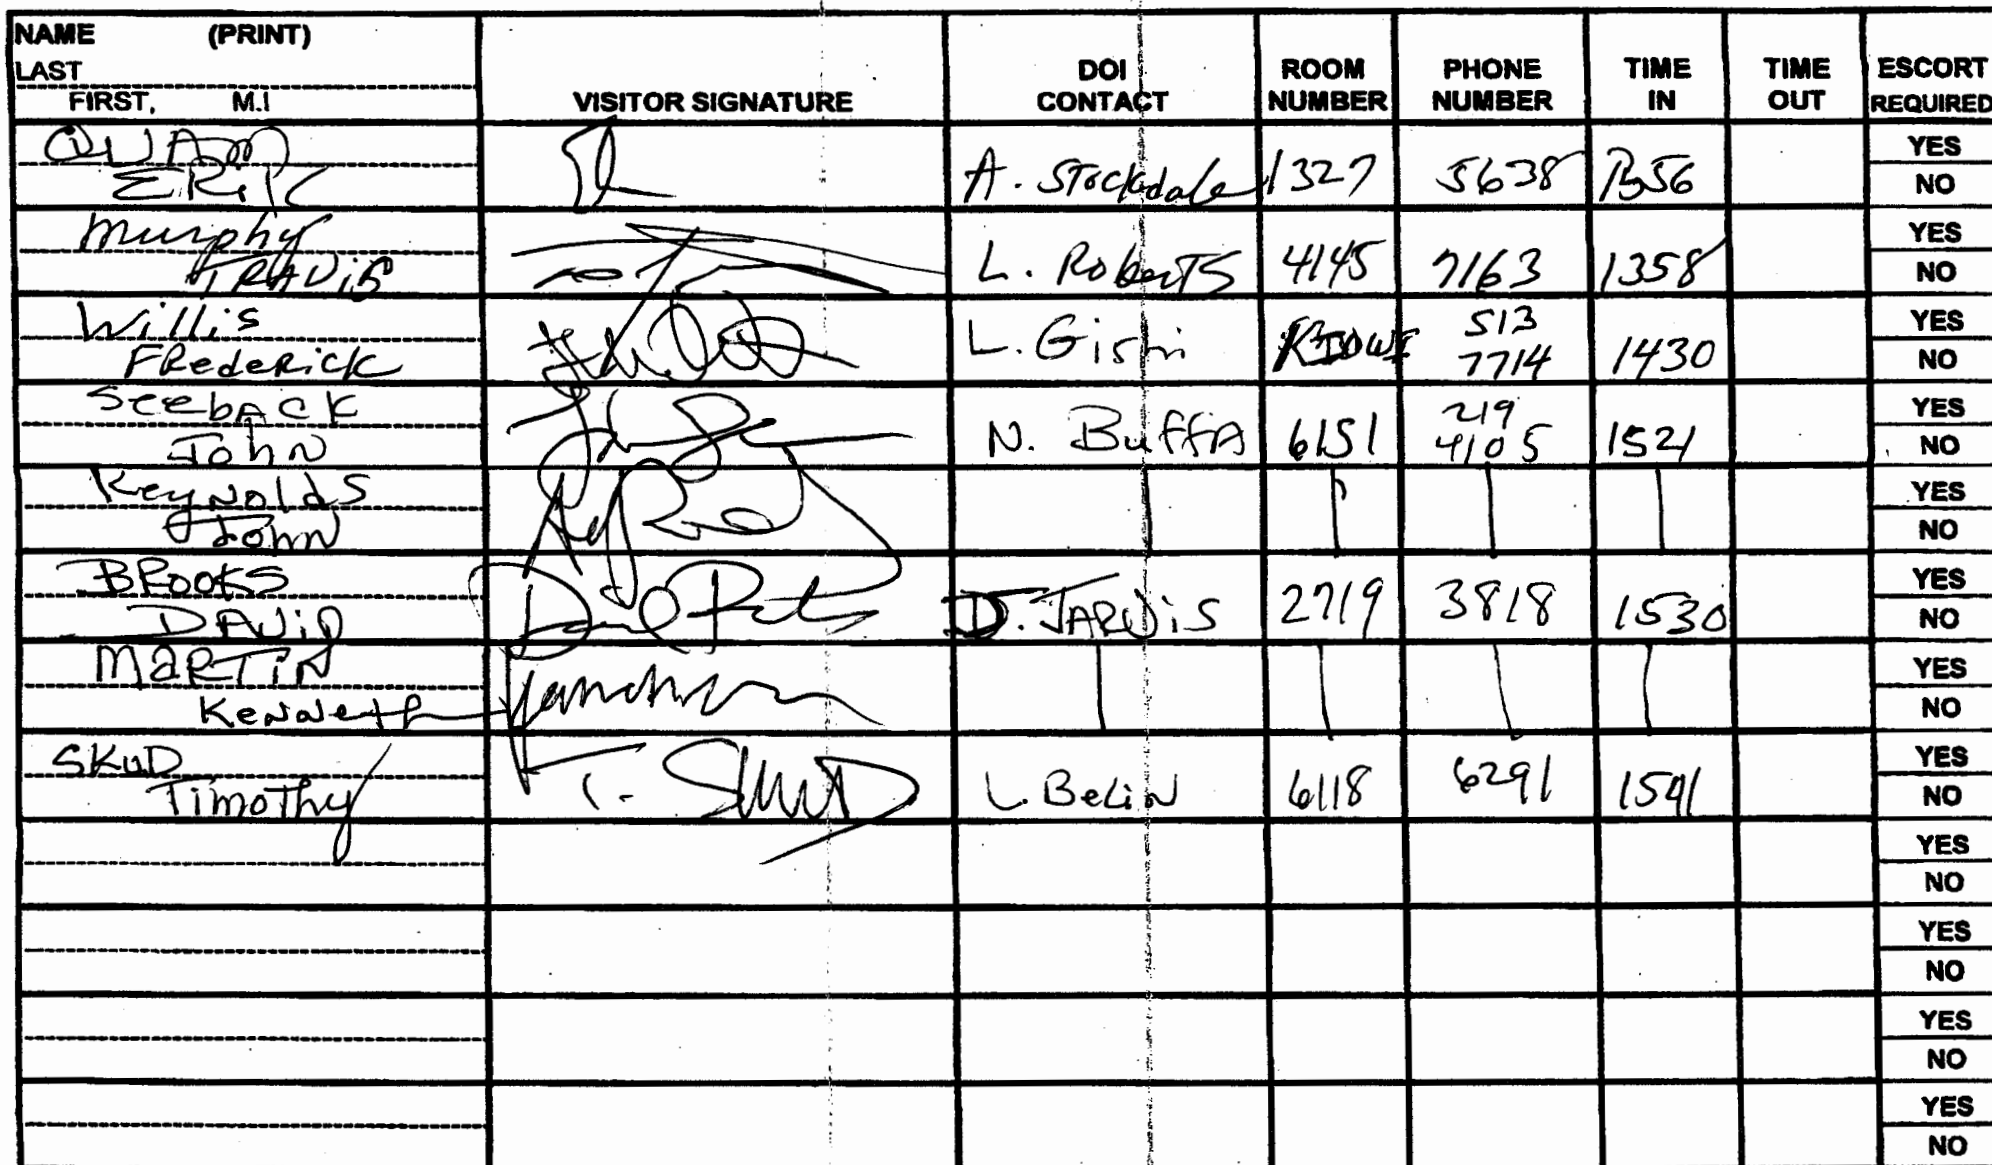 NAME (PRINT)
LAST
FIRST, M.I
VISITOR SIGNATURE
DOI CONTACT
ROOM NUMBER
PHONE NUMBER
TIME IN
TIME OUT
ESCORT REQUIRED
QUAM
ERIK
A. Stockdale 1327 5638 1356
YES
NO
Murphy
TRAVIS
L. Roberts 4145 7163 1358
YES
NO
Willis
FRedeRick
L. Gishi KIOWI 513 7714 1430
YES
NO
SeebACK
John
N. BuffA 6151 219 4105 1521
YES
NO
Reynolds
John
YES
NO
BROOKS
DAViD
D. JARViS 2719 3818 1530
YES
NO
MARTIN
KeNNeth
YES
NO
SKUD
Timothy
T. SKUD
L. BeLiN 6118 6291 1541
YES
NO
YES
NO
YES
NO
YES
NO
YES
NO